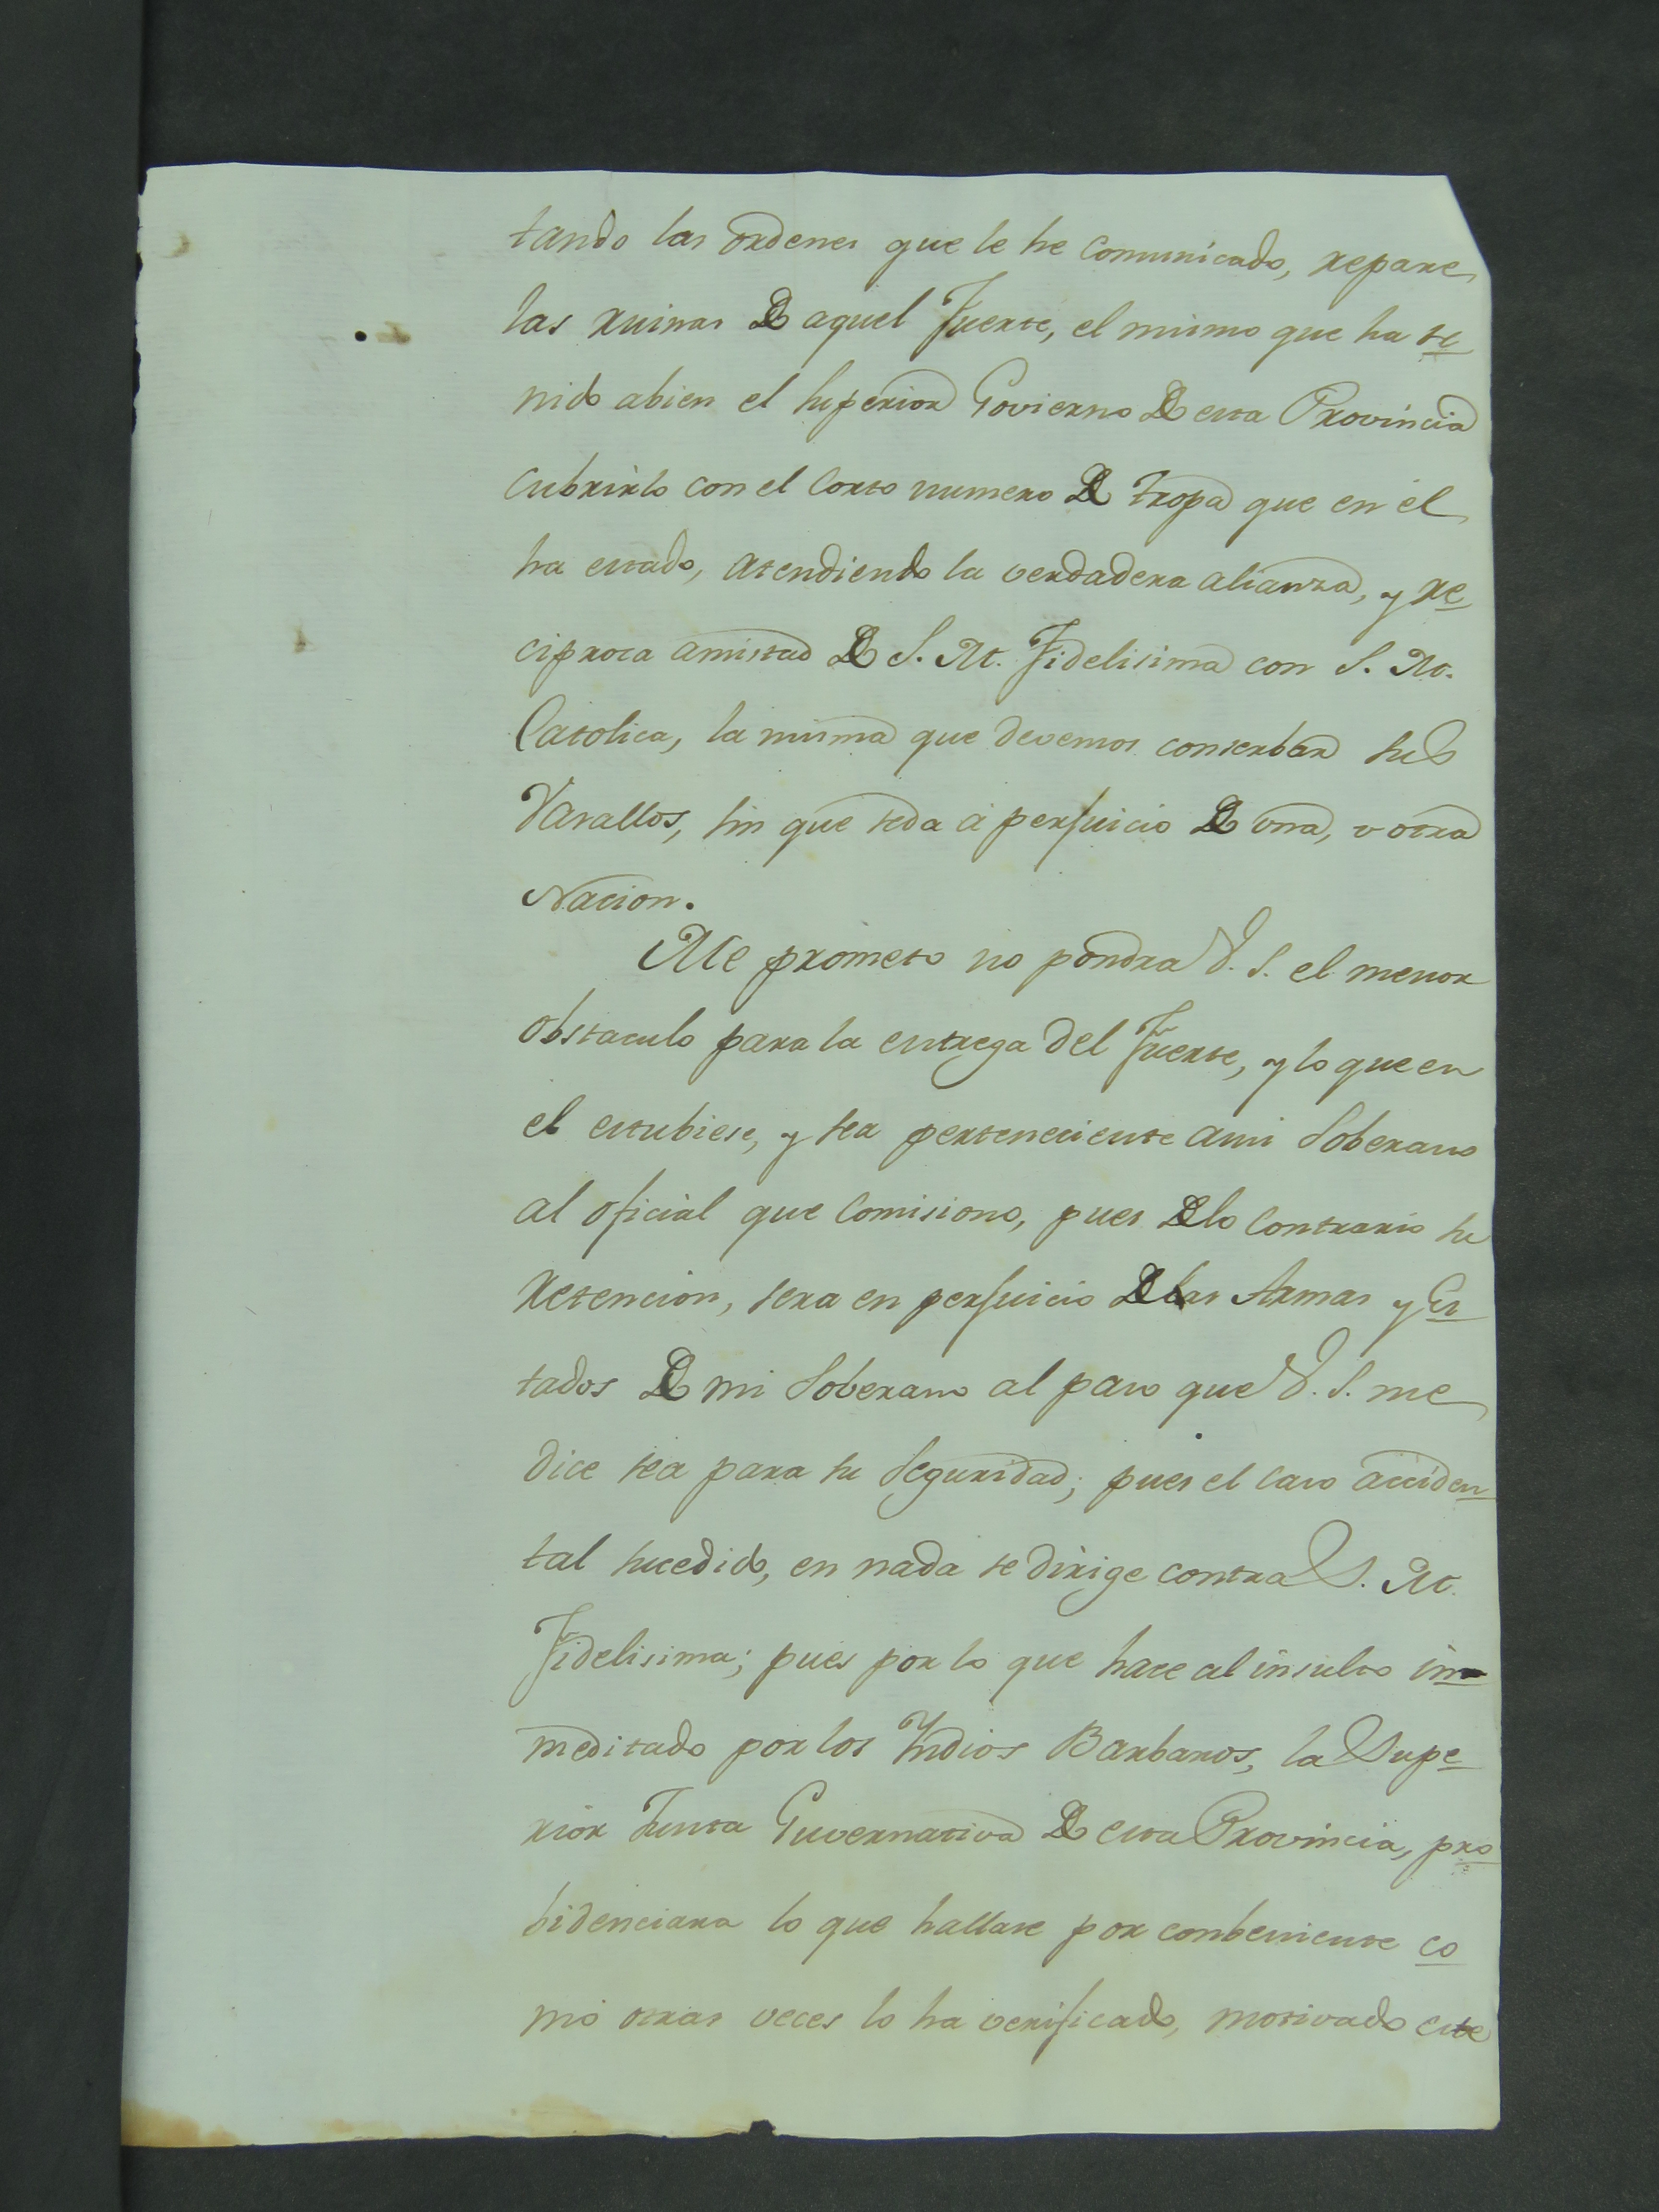 tando las ordenes que le he comunicado, repare
las ruinas De aquel Fuerte, el mismo que ha te
nido abien el superior Govierno De esta Provincia
cubrirlo con el corto numero De tropa que en él
ha estado, atendiendo la verdadera alianza, y re
ciproca amistad De S. M. Fidelisima con S. M.
Catolica, la misma que devemos conserbar sus
Vasallos, sin que seda á perjuicio De una, v otra
Nacion.
Me prometo no pondra V. S. el menor
obstaculo para la entrega del Fuerte, y lo que en
el estubiese, y sea perteneciente ami Soberano
al oficial que comisiono, pues Delo contrario su
retencion, sera en perjuicio Delas Armas y Es
tados De mi Soberano al paso que V. S. me
dice sea para su seguridad; pues el caso acciden
tal sucedido, en nada se dirige contra S. M.
Fidelisima; pues por lo que hace al insulto in
meditado por los Yndios Barbaros, la Supe
rior Junta Guvernativa De esta Provincia, pro
bidenciara lo que hallare por conbeniente co
mo otras veces lo ha verificado, motivado este